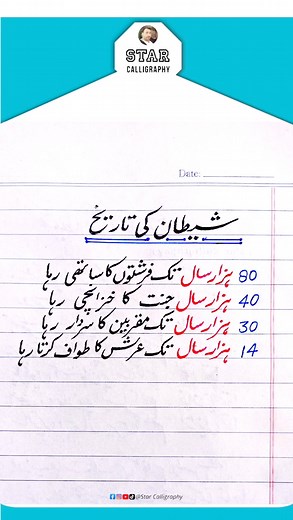 STAR
CALLIGRAPHY
Date:
شیطان کی تاریخ
80 ہزار سال تک فرشتوں کا ساتھی رہا
40 ہزار سال جنت کا خزانچی رہا
30 ہزار سال تک مقربین کا سردار رہا
14 ہزار سال تک عرش کا طواف کرتا رہا
@Star Calligraphy